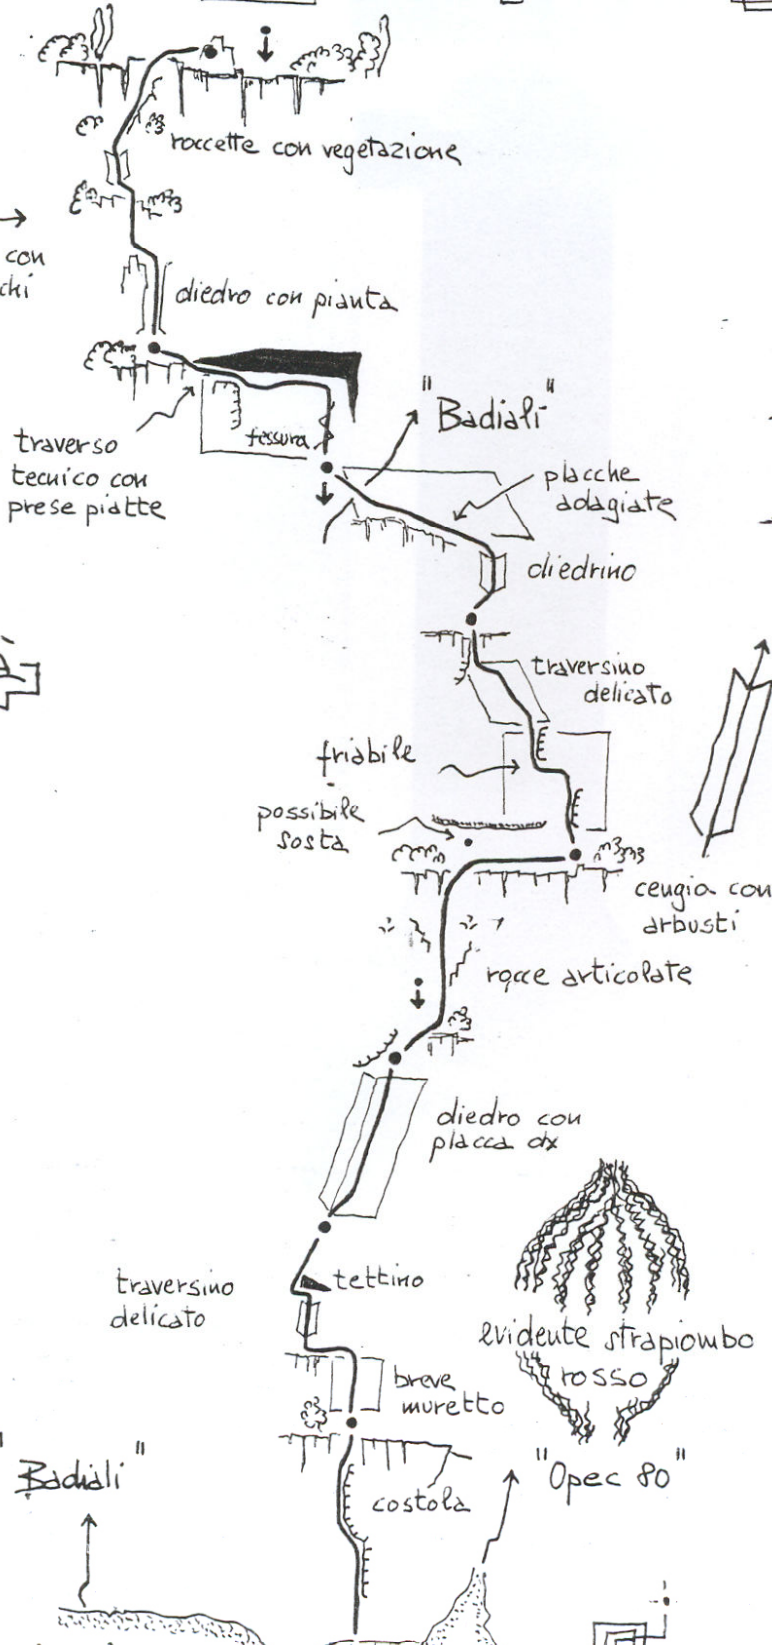 roccette con vegetazione
con
chi
diedro con pianta
"Badiali"
traverso
tecnico con
prese piatte
fessura
placche
adagiate
diedrino
traversino
delicato
friabile
possibile
sosta
cengia con
arbusti
rocce articolate
diedro con
placca dx
traversino
delicato
tettino
evidente strapiombo
rosso
breve
muretto
"Badiali"
"Opec 80"
costola